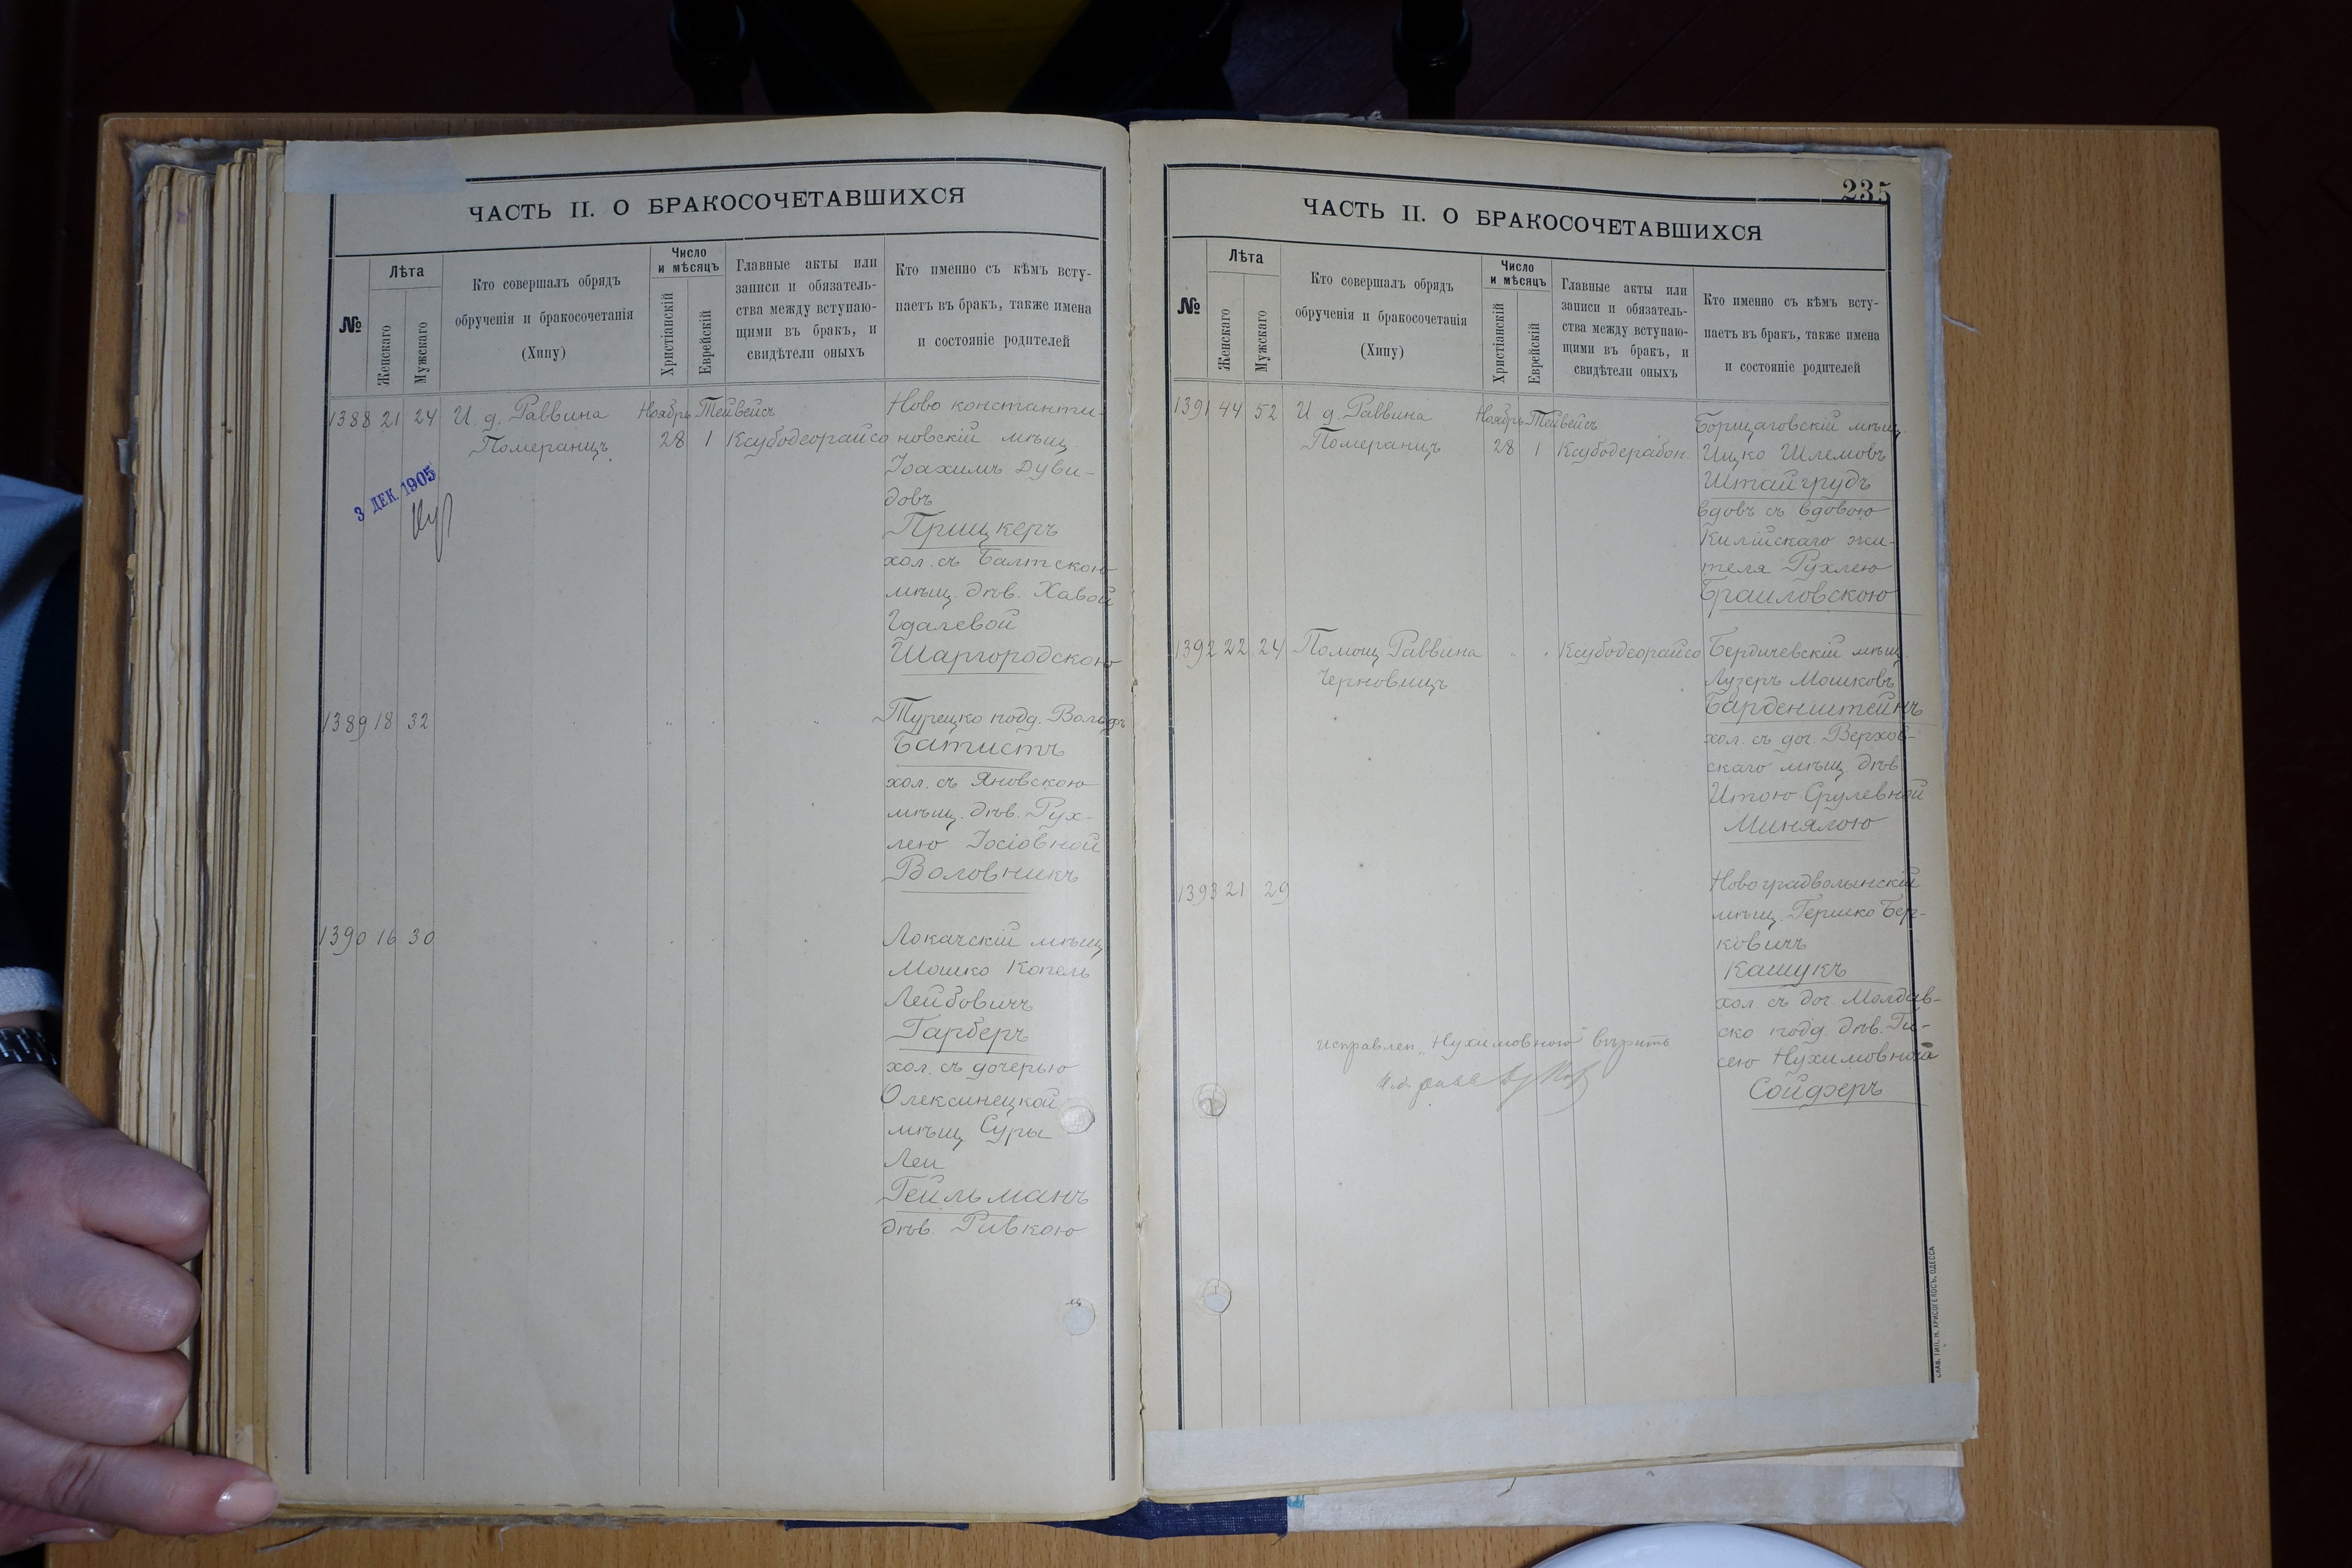 ЧАСТЬ II. О БРАКОСОЧЕТАВШИХСЯ
№
Лѣта
Женскаго
Мужскаго
Кто совершалъ обрядъ
обрученія и бракосочетанія
(Хипу)
Число
и мѣсяцъ
Христіанскій
Еврейскій
Главные акты или
записи и обязатель-
ства между вступаю-
щими въ бракъ, и
свидѣтели оныхъ
Кто именно съ кѣмъ всту-
паетъ въ бракъ, также имена
и состояніе родителей
1388 21 24 И. д. Раввина Ноябрь Тейвейсъ Ново константи-
Померанцъ 28 1 Ксубодеорайсо новскій мѣщ.
Іоахимъ Дуви-
довъ
3 ДЕК. 1905
Прицкеръ
хол. съ Балтскою
мѣщ. дѣв. Хавой
Идалевой
Шаргородскою
1389 18 32 " " " Турецко подд. Вольфъ
Батистъ
хол. съ Яновскою
мѣщ. дѣв. Рух-
лею Іосіовной
Воловникъ
1390 16 30 Локачскій мѣщ.
Мошко Копель
Лейбовичъ
Гарберъ
хол. съ дочерью
Олексинецкой
мѣщ. Суры
Леи
Гейльманъ
дѣв. Ривкою
235
ЧАСТЬ II. О БРАКОСОЧЕТАВШИХСЯ
№
Лѣта
Женскаго
Мужскаго
Кто совершалъ обрядъ
обрученія и бракосочетанія
(Хипу)
Число
и мѣсяцъ
Христіанскій
Еврейскій
Главные акты или
записи и обязатель-
ства между вступаю-
щими въ бракъ, и
свидѣтели оныхъ
Кто именно съ кѣмъ всту-
паетъ въ бракъ, также имена
и состояніе родителей
1391 44 52 И. д. Раввина Ноябрь Тейвейсъ Борщаговскій мѣщ.
Померанцъ 28 1 Ксубодерабон. Ицко Шлемовъ
Штайгрудъ
вдовъ съ вдовою
Килійскаго жи-
теля Рухлею
Браиловскою
1392 22 24 Помощ. Раввина " " Ксубодеорайсо Бердичевскій мѣщ.
Черновицъ Лузеръ Мошковъ
Барденштейнъ
хол. съ доч. Верхов-
скаго мѣщ. дѣв.
Итою Срулевной
Минялою
1393 21 29 Новоградволынскій
мѣщ. Гершко Бер-
ковичъ
Кашукъ
хол. съ доч. Молдав-
ско подд. дѣв. Ги-
сею Нухимовной
Сойферъ
Исправлен. „Нухимовною" вѣрить
СЛАВ. ТИП. Н. ХРИСОГЕЛОСЪ, ОДЕССА